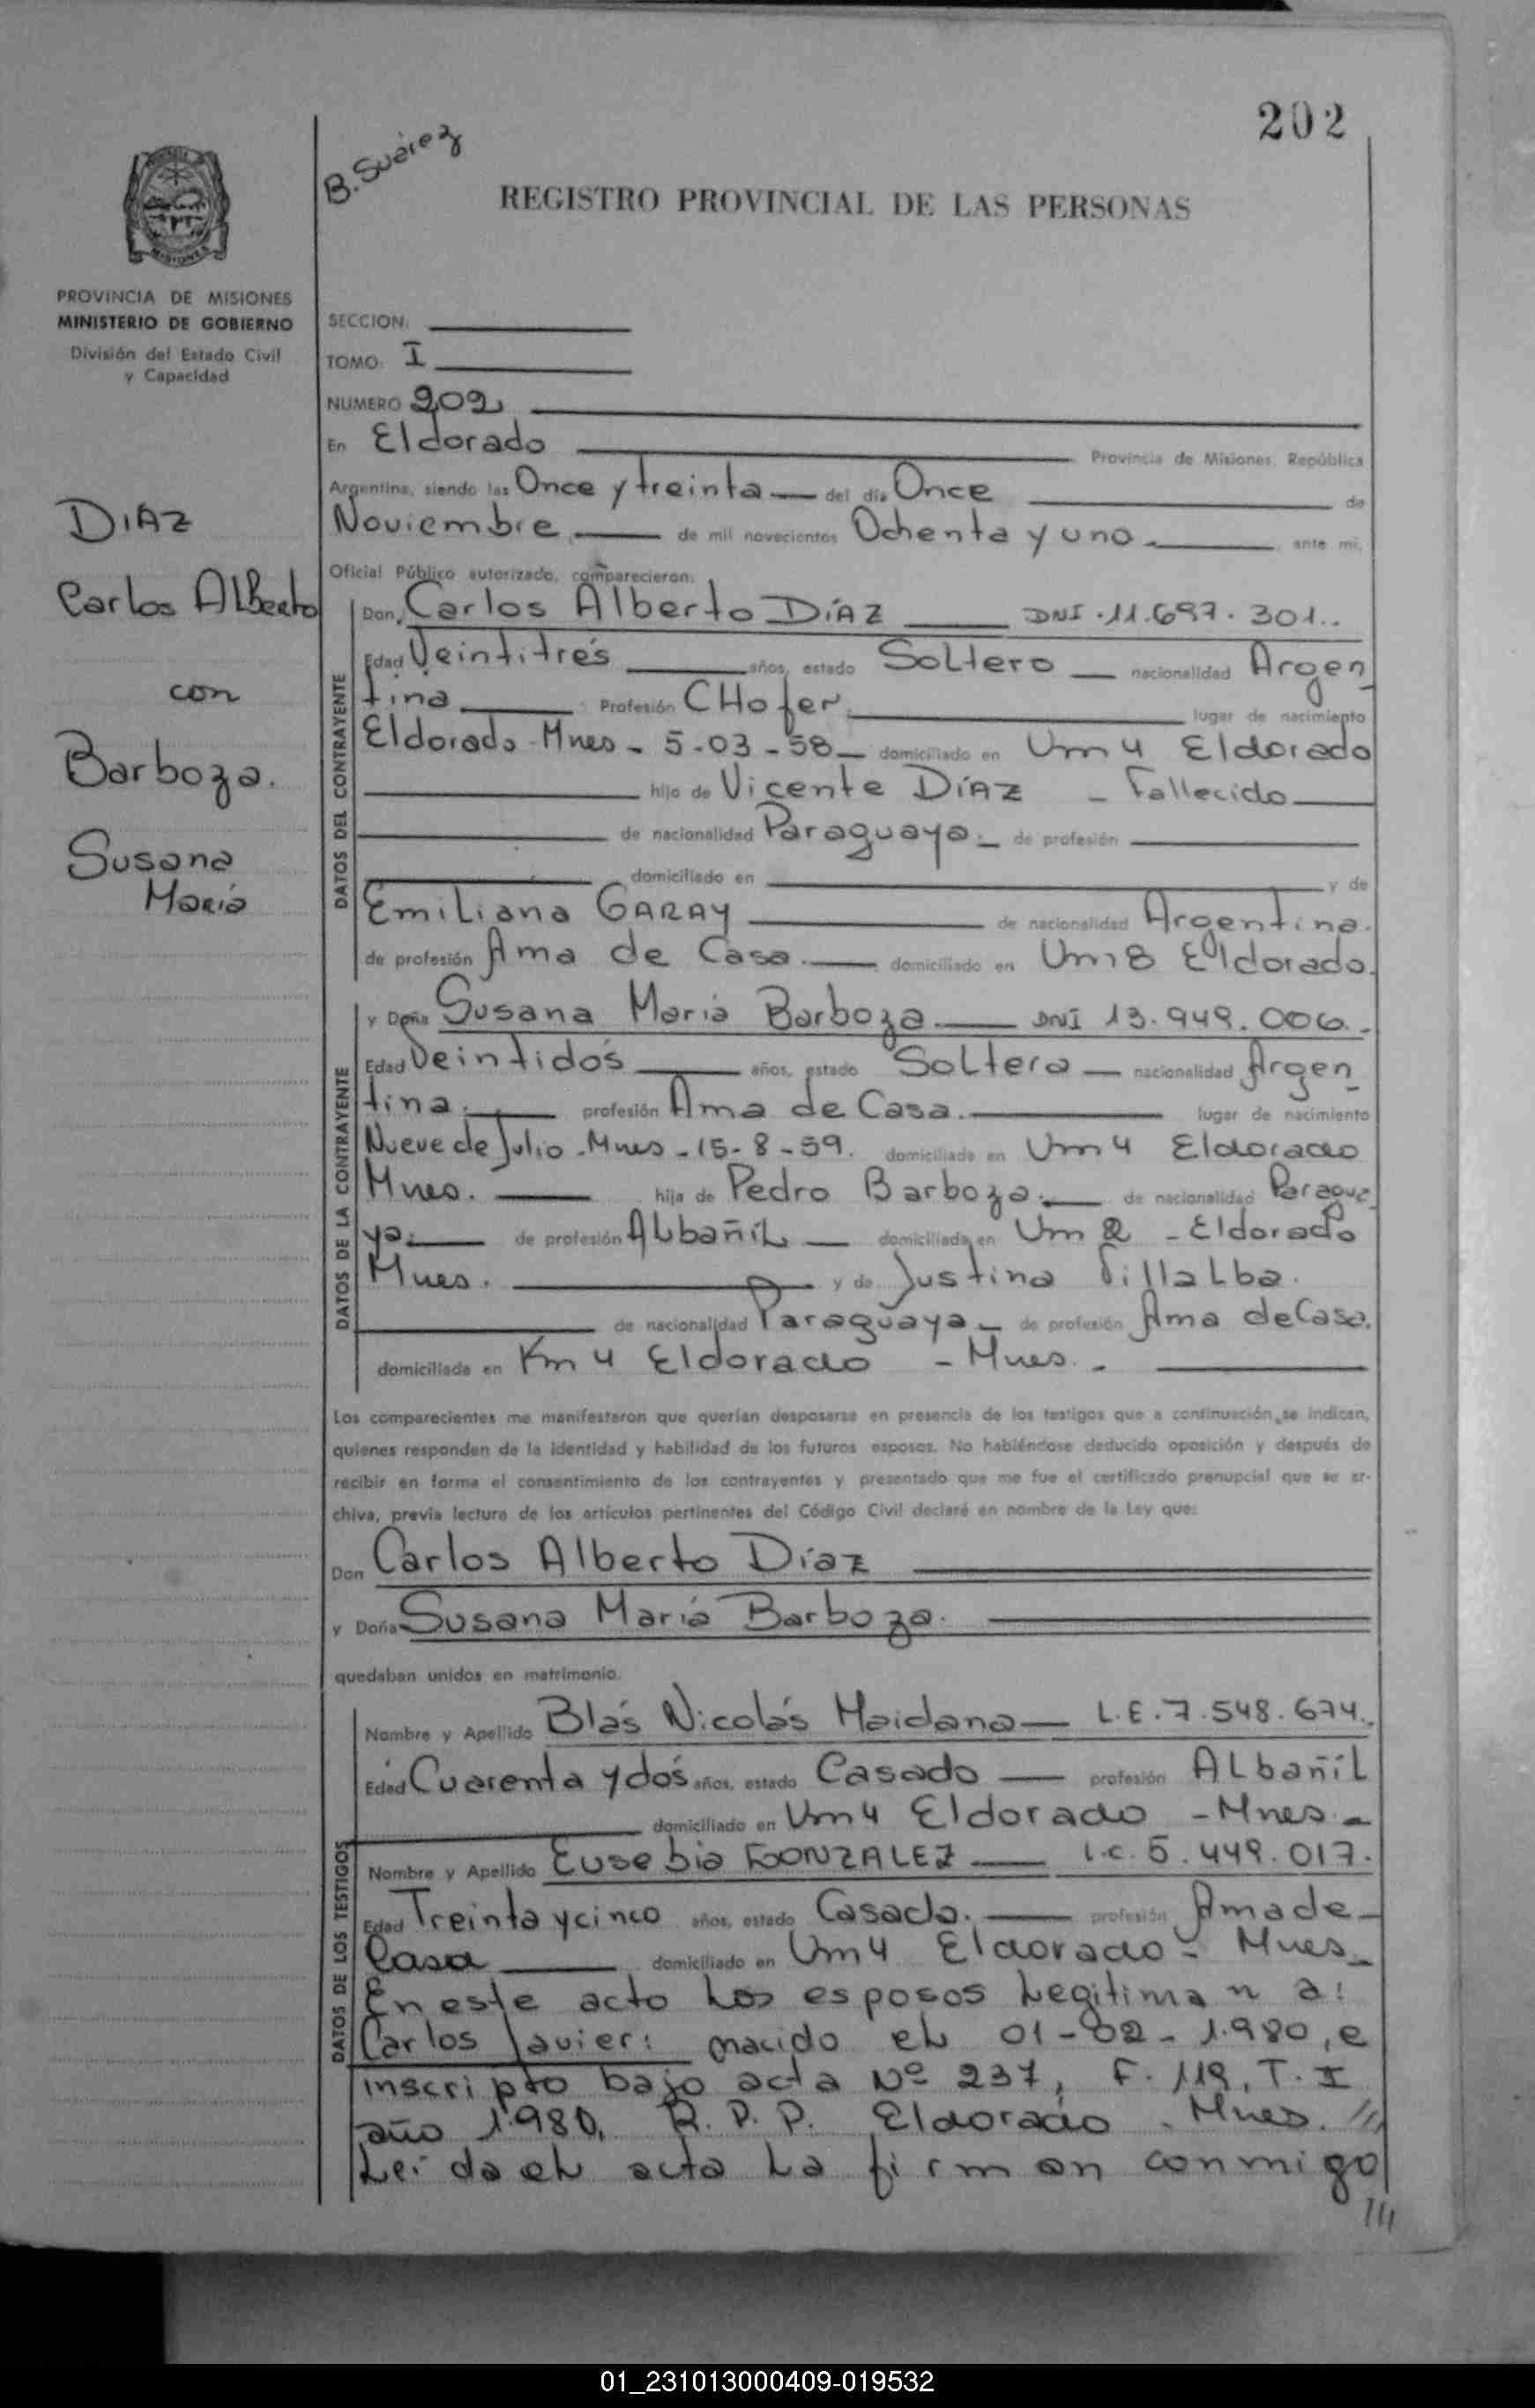 202
B. Suárez
REGISTRO PROVINCIAL DE LAS PERSONAS
MISIONES
PROVINCIA DE MISIONES
MINISTERIO DE GOBIERNO
División del Estado Civil
y Capacidad
DIAZ
Carlos Alberto
con
Barboza.
Susana
María
SECCION:
TOMO: I
NUMERO 202
En Eldorado Provincia de Misiones, República
Argentina, siendo las Once y treinta del día Once de
Noviembre de mil novecientos Ochenta y uno ante mí,
Oficial Público autorizado, comparecieron:
DATOS DEL CONTRAYENTE
Don, Carlos Alberto DíAZ DNI. 11.697.301..
Edad Veintitrés años, estado Soltero nacionalidad Argen
tina Profesión CHofer lugar de nacimiento
Eldorado - Mnes - 5-03-58 domiciliado en Km 4 Eldorado
hijo de Vicente DíAZ - Fallecido
de nacionalidad Paraguaya. de profesión
domiciliado en y de
Emiliana GARAY de nacionalidad Argentina.
de profesión Ama de Casa. domiciliado en Km 8 Eldorado.
DATOS DE LA CONTRAYENTE
y Doña Susana María Barboza DNI 13.949.006.
Edad Veintidós años, estado Soltera nacionalidad Argen
tina. profesión Ama de Casa. lugar de nacimiento
Nueve de Julio - Mnes - 15-8-59. domiciliada en Km 4 Eldorado
Mnes. hija de Pedro Barboza. de nacionalidad Paragua
ya. de profesión Albañil domiciliado en Km 2 - Eldorado
Mnes. y de Justina Villalba.
de nacionalidad Paraguaya de profesión Ama de Casa.
domiciliada en Km 4 Eldorado - Mnes. -
Los comparecientes me manifestaron que querían desposarse en presencia de los testigos que a continuación se indican,
quienes responden de la identidad y habilidad de los futuros esposos. No habiéndose deducido oposición y después de
recibir en forma el consentimiento de los contrayentes y presentado que me fue el certificado prenupcial que se ar-
chiva, previa lectura de los artículos pertinentes del Código Civil declaré en nombre de la Ley que:
Don Carlos Alberto Díaz
y Doña Susana María Barboza.
quedaban unidos en matrimonio.
DATOS DE LOS TESTIGOS
Nombre y Apellido Blás Nicolás Maidana L.E. 7.548.674.
Edad Cuarenta y dós años, estado Casado profesión Albañil
domiciliado en Km 4 Eldorado - Mnes -
Nombre y Apellido Eusebia GONZALEZ L.C. 5.449.017.
Edad Treinta y cinco años, estado Casada. profesión Ama de
Casa domiciliado en Km 4 Eldorado - Mnes
En este acto los esposos Legitiman a:
Carlos Javier: nacido el 01-02-1.980, e
inscripto bajo acta Nº 237, F. 119, T. I
año 1.980, R.P.P. Eldorado - Mnes. ///
Leída el acta la firman conmigo
///
01_231013000409-019532